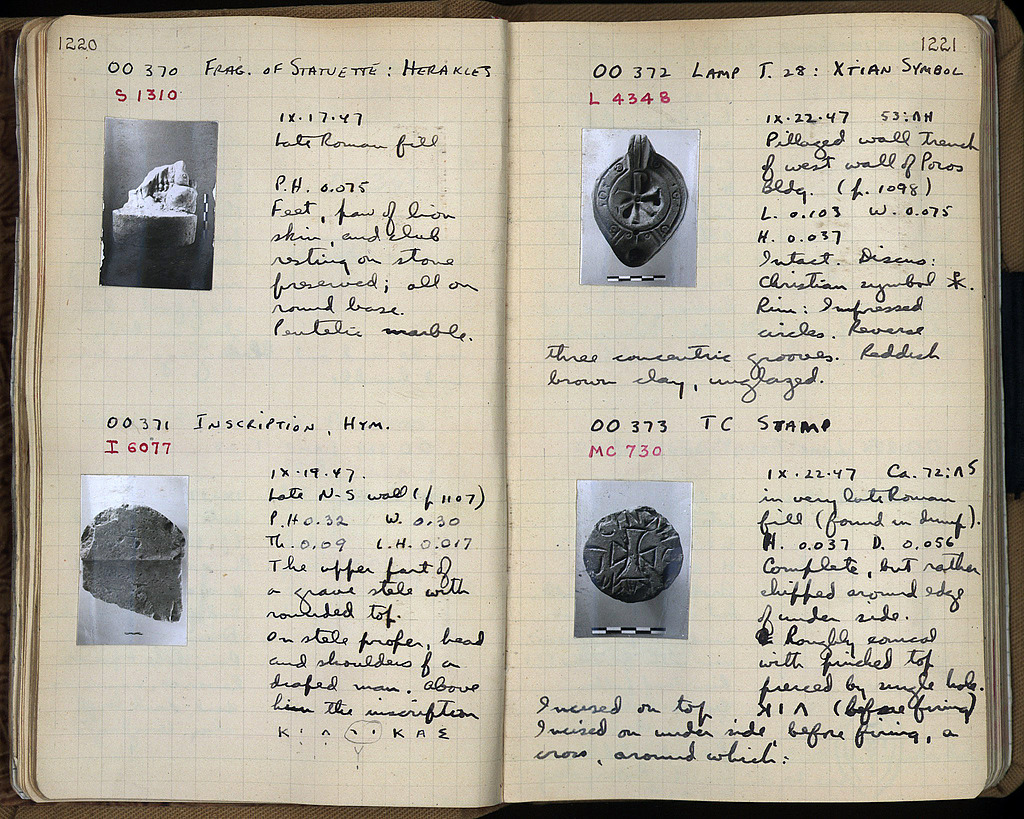 1220
OO 370 FRAG. OF STATUETTE: HERAKLES
S 1310
IX·17·47
Late Roman fill
P.H. 0.075
Feet, paw of lion
skin, and club
resting on stone
preserved; all on
round base.
Pentelic marble.
OO 371 INSCRIPTION, HYM.
I 6077
IX·19·47.
Late N-S wall (p. 1107)
P.H 0.32 W. 0.30
Th. 0.09 L.H. 0.017
The upper part of
a grave stele with
rounded top.
On stele proper, head
and shoulders of a
draped man. Above
him the inscription
K Α Σ
1221
OO 372 LAMP T. 28: XTIAN SYMBOL
L 4348
IX·22·47 53:ΛH
Pillaged wall trench
of west wall of Poros
Bldg. (p. 1098)
L. 0.103 W. 0.075
H. 0.037
Intact. Discus:
Christian symbol ⳩.
Rim: Impressed
circles. Reverse
three concentric grooves. Reddish
brown clay, unglazed.
OO 373 TC STAMP
MC 730
IX·22·47 Ca. 72:ΛS
in very late Roman
fill (found in dump).
H. 0.037 D. 0.056
Complete, but rather
chipped around edge
of under side.
Roughly conical
with pinched top
pierced by single hole.
Incised on top (before firing)
Incised on under side, before firing, a
cross, around which: